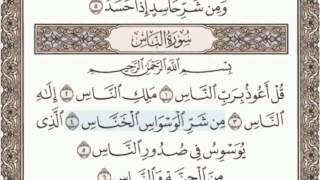 وَمِن شَرِّ حَاسِدٍ إِذَا حَسَدَ ٥
سُورَةُ النَّاسِ
بِسْمِ اللَّهِ الرَّحْمَٰنِ الرَّحِيمِ
قُلْ أَعُوذُ بِرَبِّ النَّاسِ ١ مَلِكِ النَّاسِ ٢ إِلَٰهِ
النَّاسِ ٣ مِن شَرِّ الْوَسْوَاسِ الْخَنَّاسِ ٤ الَّذِي
يُوَسْوِسُ فِي صُدُورِ النَّاسِ ٥
مِنَ الْجِنَّةِ وَالنَّاسِ ٦